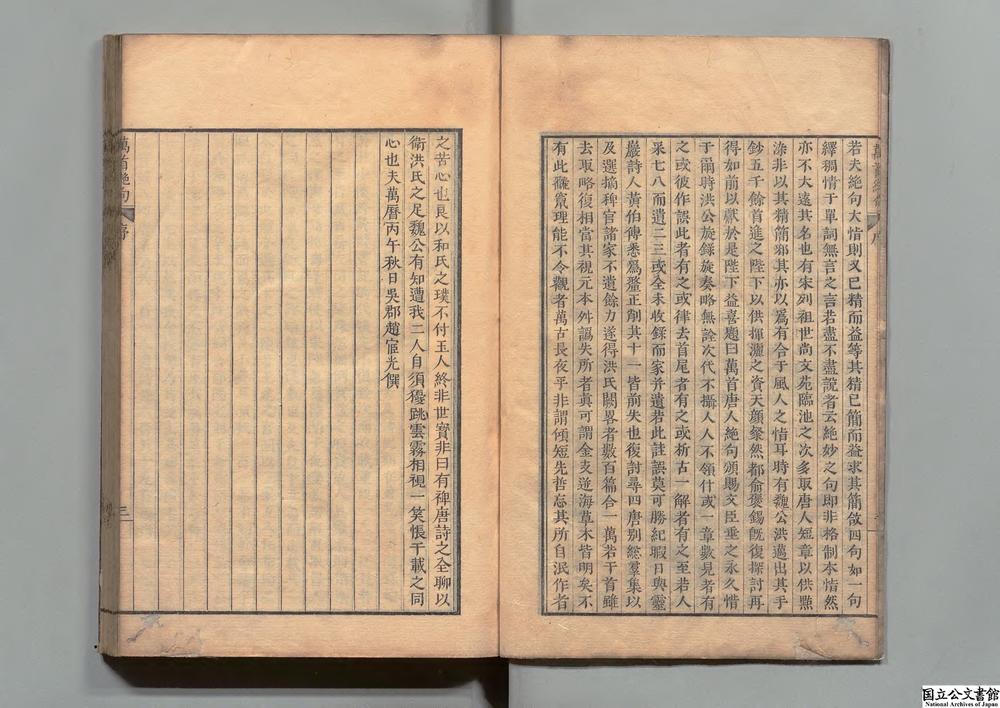 若夫絶句大情則又已精而益等其精已簡而益求其簡故四句如一句
繹稠情于單詞無言之言若盡不盡說者云絶妙之句即非格制本情然
亦不大遠其名也有宋列祖世尚文苑臨池之次多取唐人短章以供㸃
染非以其精簡邪其亦以爲有合于風人之情耳時有魏公洪邁出其手
鈔五千餘首進之陛下以供揮灑之資天顏粲然都俞褒錫旣復探討再
得如前以獻於是陛下益喜題曰萬首唐人絶句頒賜文臣垂之永久惜
于爾時洪公旋錄旋奏略無詮次代不攝人人不領什或一章數見者有
之或彼作誤此者有之或律去首尾者有之或析古一解者有之至若人
采七八而遺二三或全未收錄而家并遺若此註誤莫可勝紀暇日與靈
巖詩人黃伯傳悉爲釐正削其十一皆前失也復討尋四唐別緫羣集以
及選搞稗官諸家不遺餘力遂得洪氏闕畧者數百篇合一萬若干首雖
去取略復相當其視元本舛譌失所者眞可謂金支逆海草木皆明矣不
有此龝竄理能不令觀者萬古長夜乎非謂傾短先哲忘其所自泯作者
之苦心也良以和氏之璞不付玉人終非世寳非曰有稗唐詩之全聊以
衛洪氏之足魏公有知遭我二人自須㩴跳雲霧相視一笑悵千載之同
心也夫萬曆丙午秋日吳郡趙宧光僎
萬首絶句
序
三